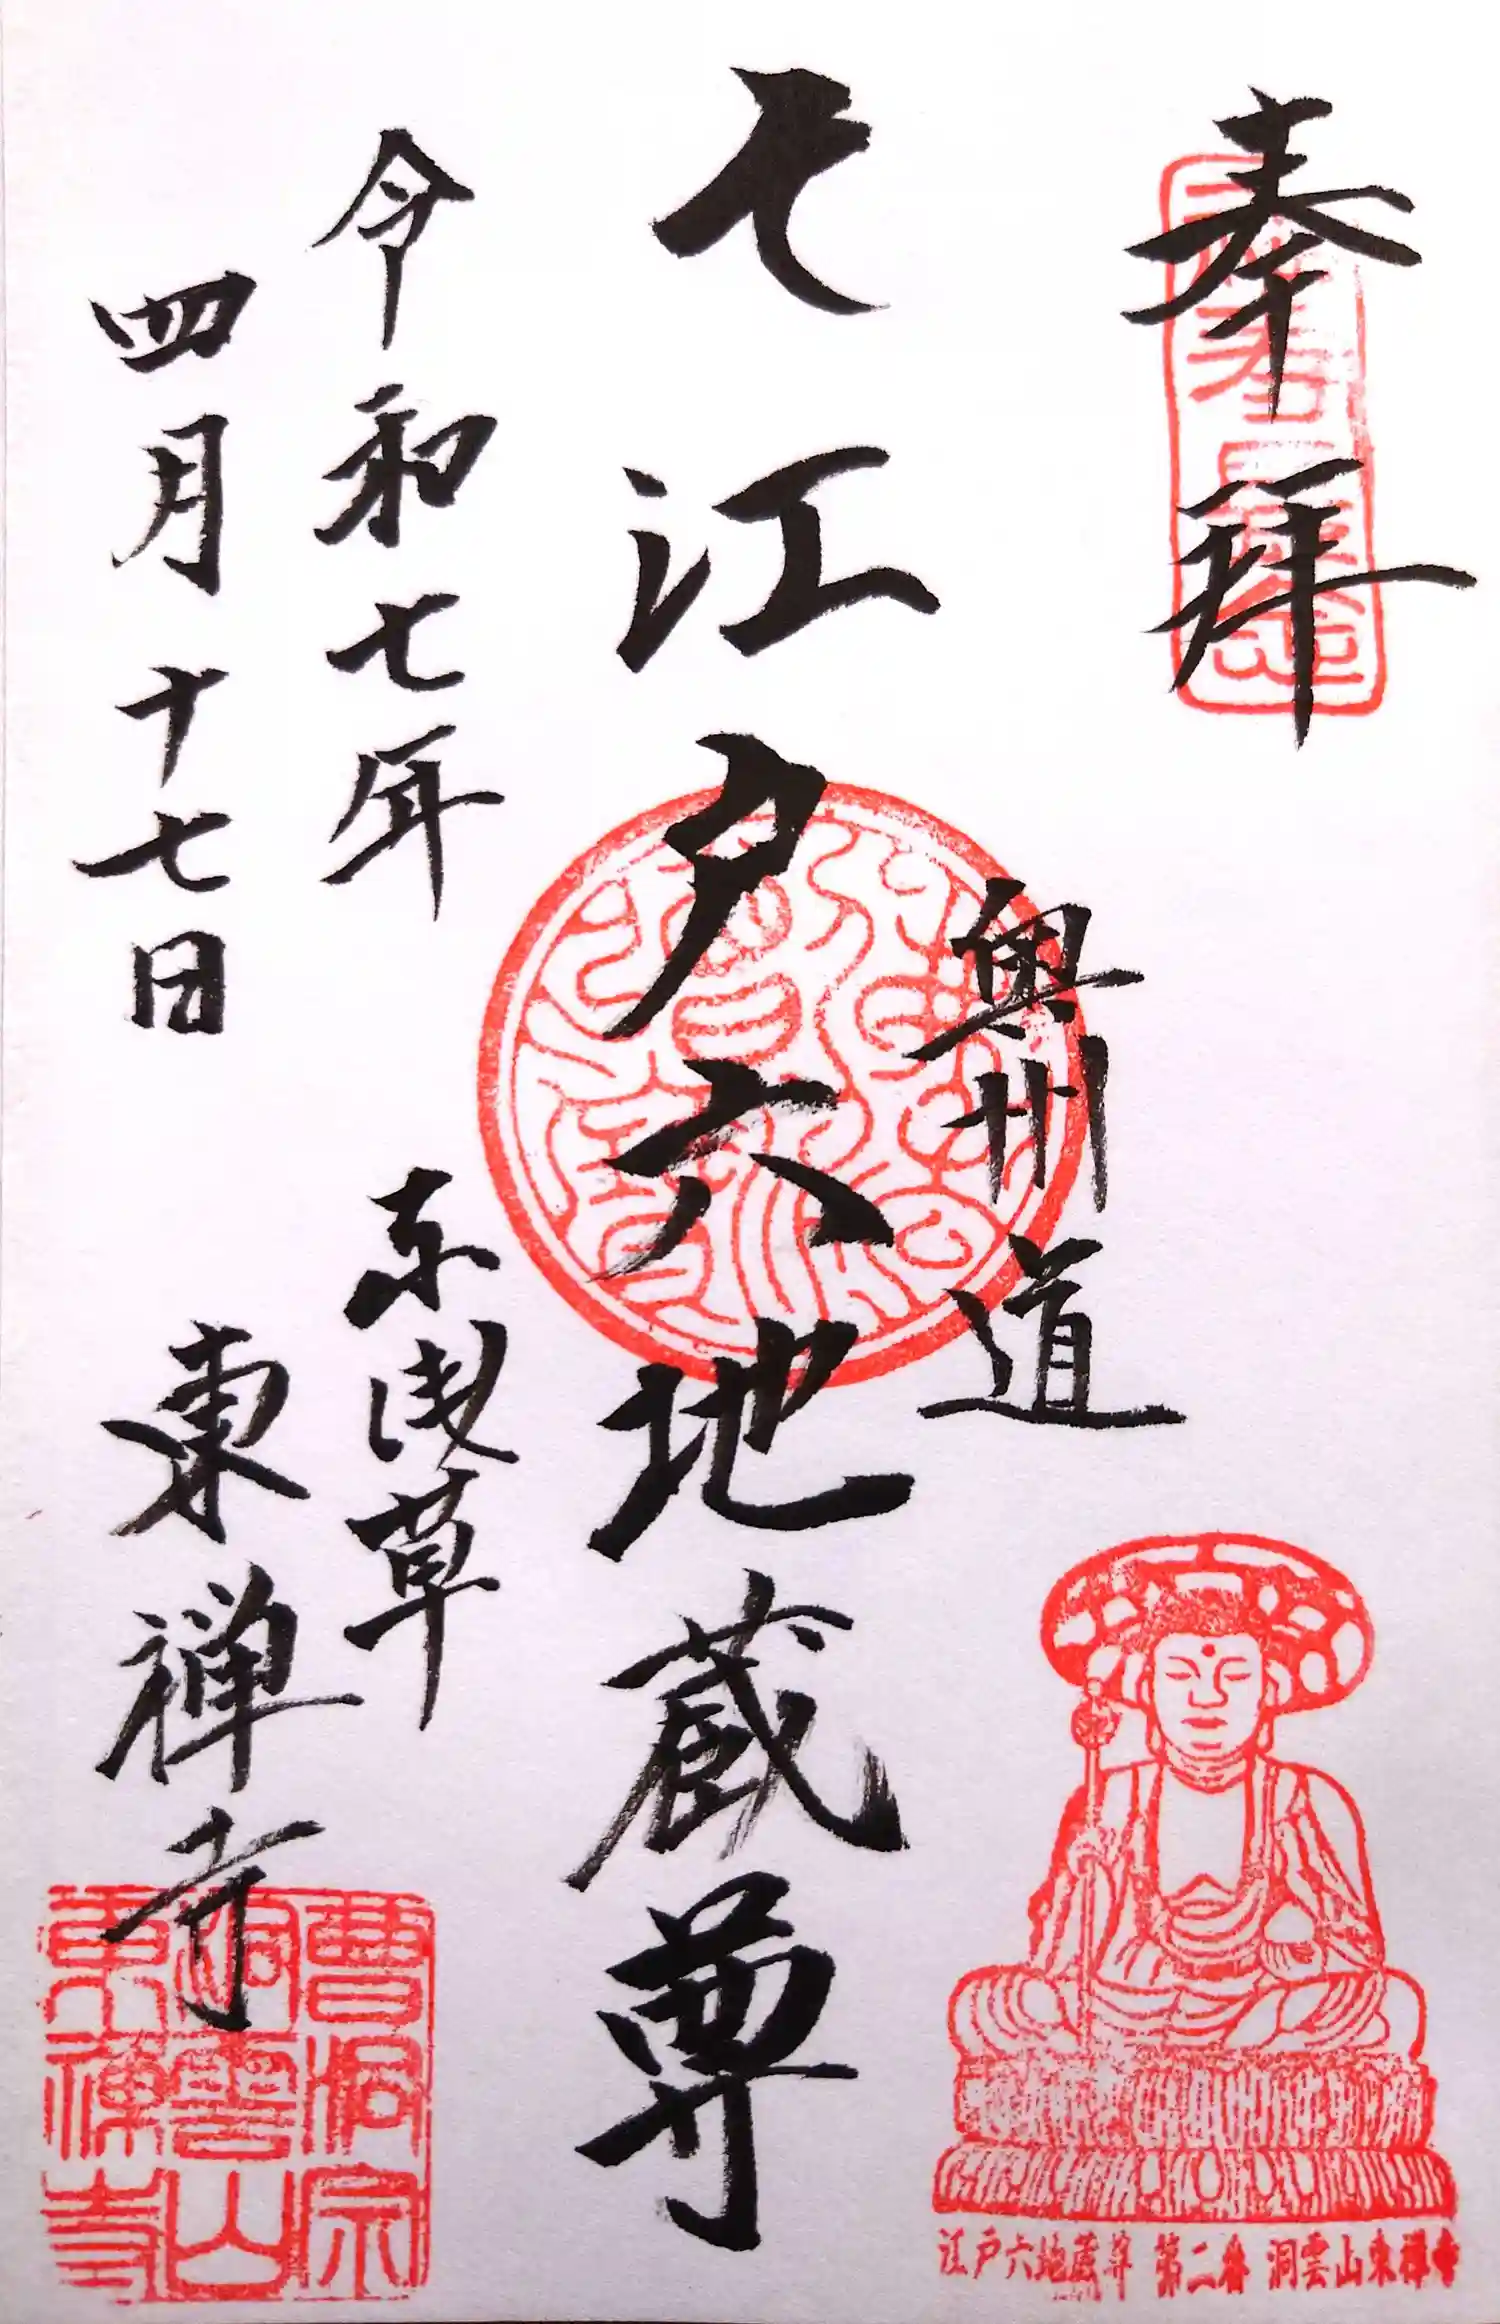 奉拝
奥州道
七江戸六地蔵尊
令和七年
四月十七日
东浅草
東禅寺
曹洞宗
洞雲山
東禅寺
江戸六地蔵尊 第二番 洞雲山東禅寺